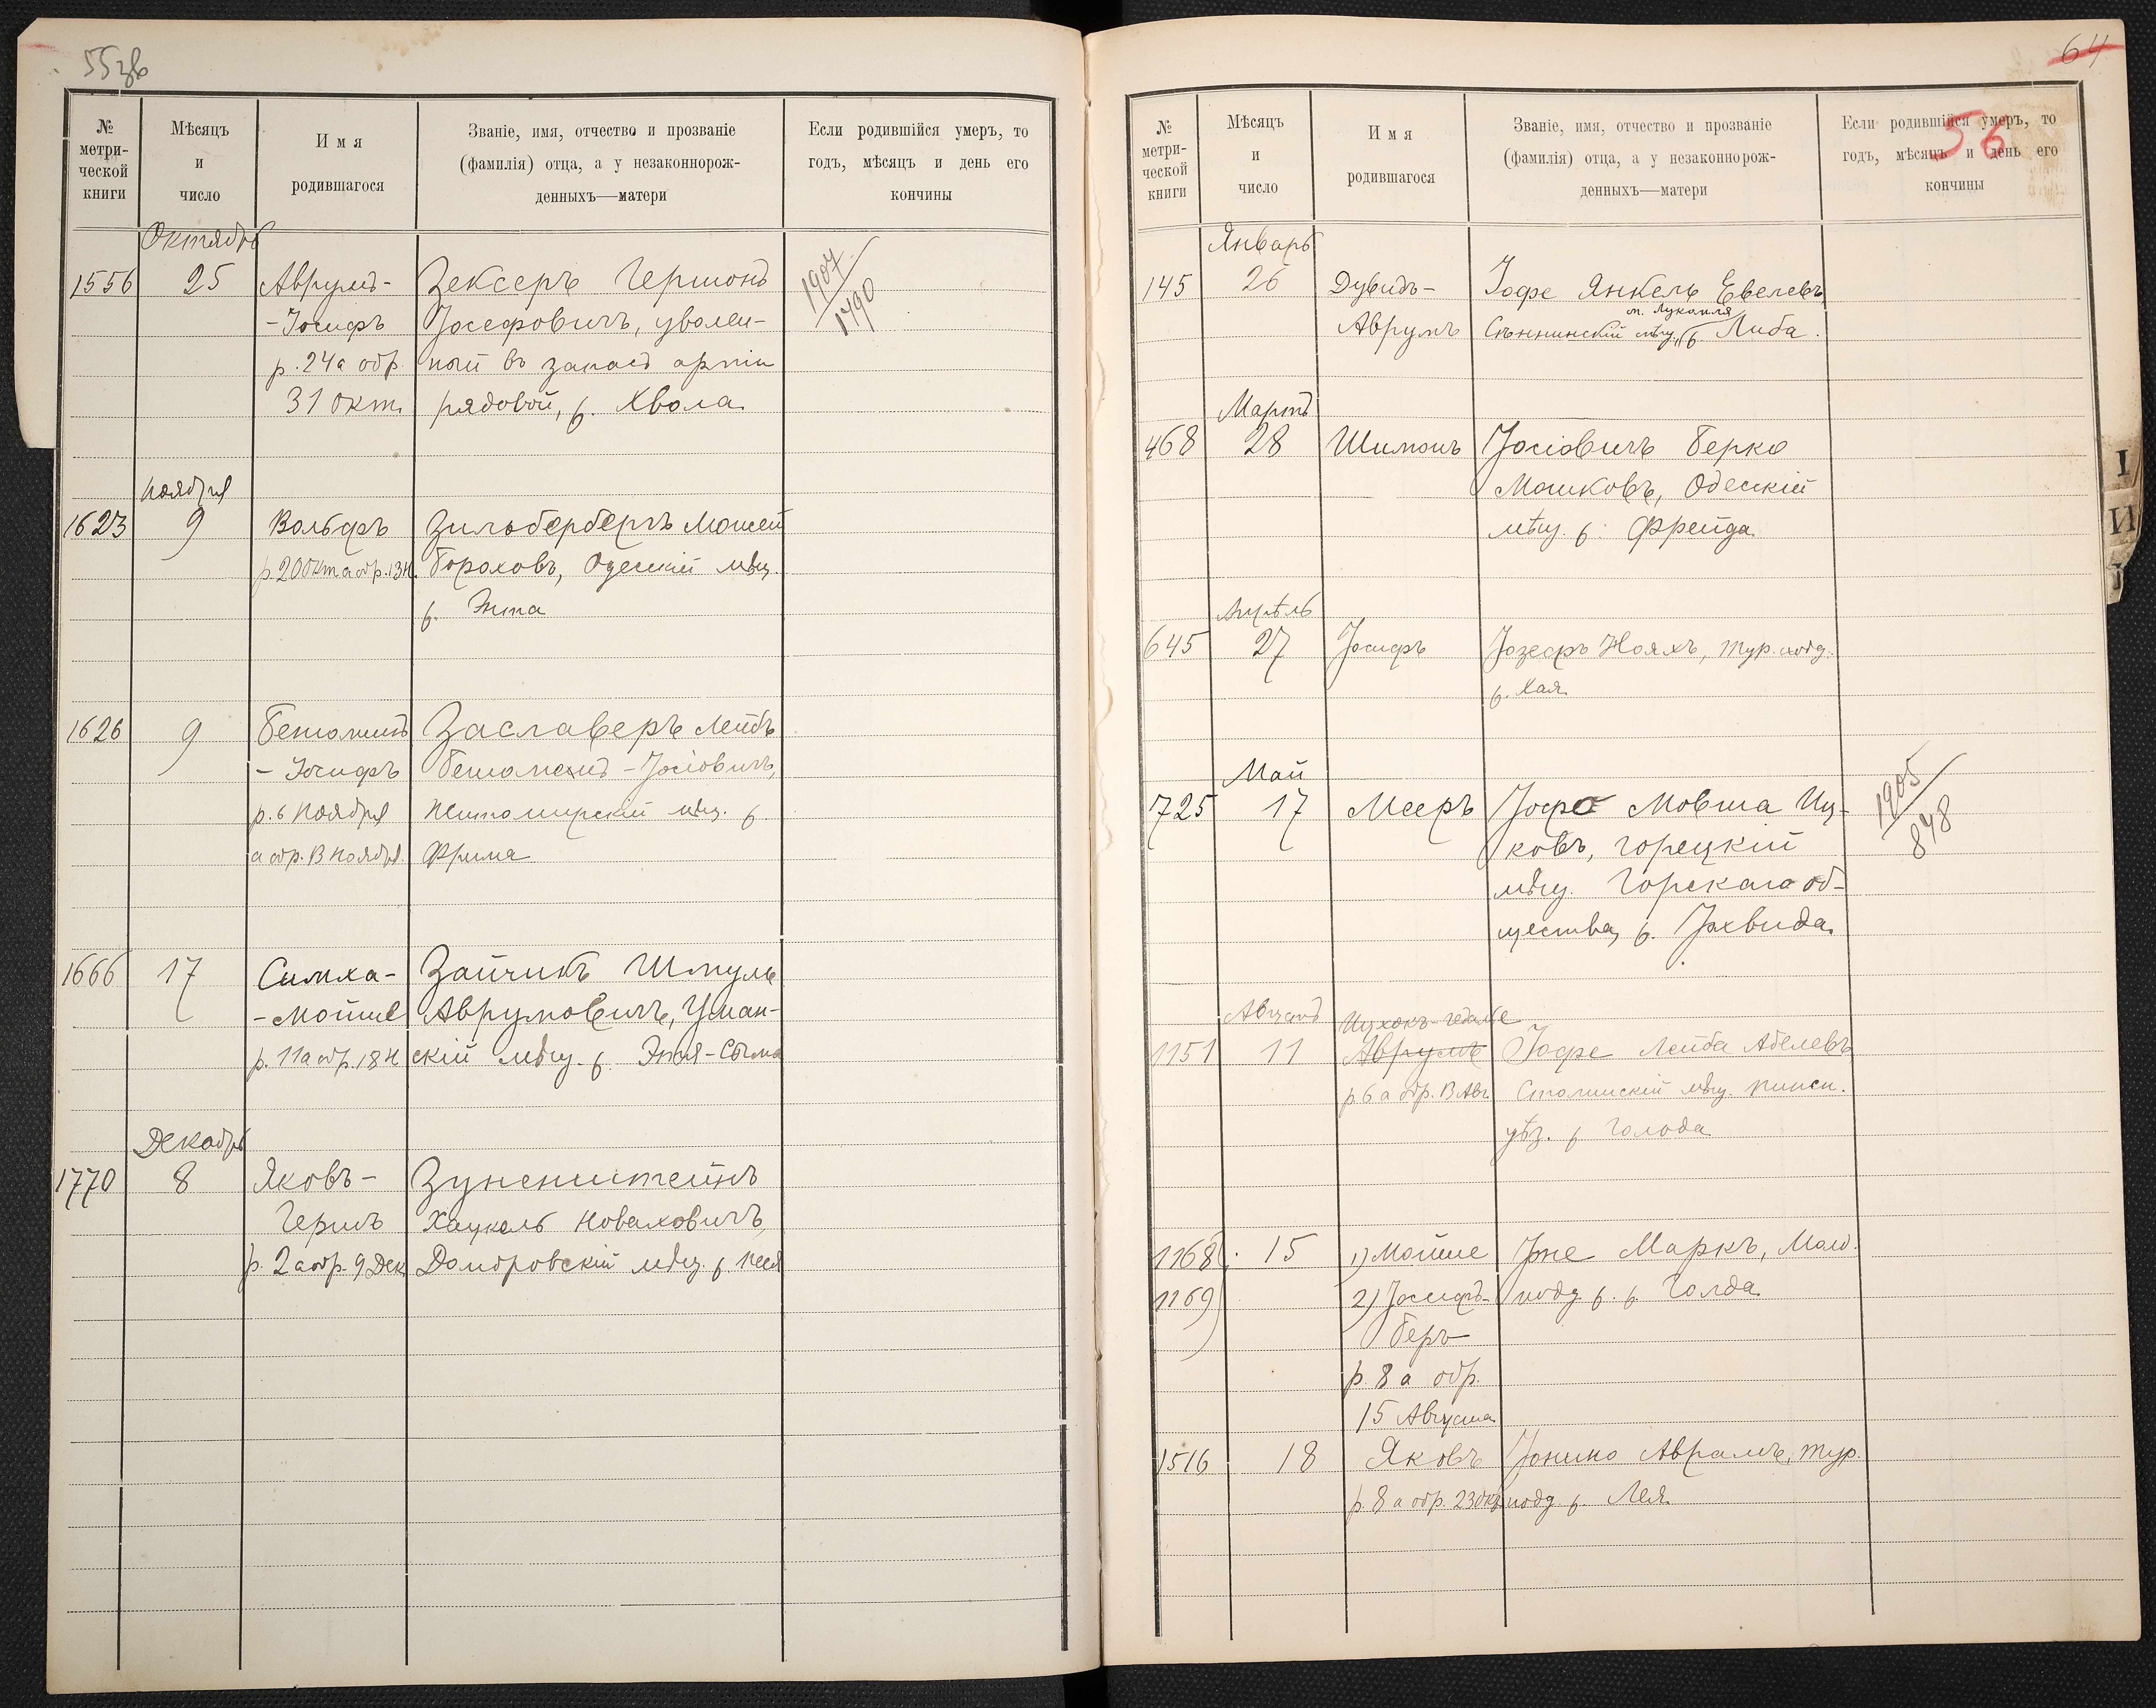 55зв
№ метрической книги
Мѣсяцъ и число
Имя родившагося
Званіе, имя, отчество и прозваніе
(фамилія) отца, а у незаконнорож-
денныхъ—матери
Если родившійся умеръ, то
годъ, мѣсяцъ и день его
кончины
Октябрь
1556 25 Аврумъ- Зексеръ Гершонъ 1907/1790
-Іосифъ Іосефовичъ, уволен-
р. 24 а обр. ный въ запасъ арміи
31 Окт. рядовой, ж. Хвола
Ноября
1623 9 Вольфъ Зильбербергъ Мошей
р. 20 Окт а обр. 13 Н. Бороховъ, Одесскій мѣщ.
ж. Этта
1626 9 Беньоминъ Заславеръ Лейбъ
-Іосифъ Беньоменъ-Іосіовичъ,
р. 6 Ноября Житомирскій мѣщ. ж.
а обр. 13 Ноября Фрима
1666 17 Симха- Зайчикъ Шмуль
-Мойше Аврумовичъ, Уман-
р. 11 а обр. 18 Н скій мѣщ. ж. Этя-Сыма
Декабрь
1770 8 Яковъ- Зуненштейнъ
Гершъ Хацкель Новаховичъ,
р. 2 а обр. 9 Дек Домбровскій мѣщ. ж. Песя
64
56
№ метрической книги
Мѣсяцъ и число
Имя родившагося
Званіе, имя, отчество и прозваніе
(фамилія) отца, а у незаконнорож-
денныхъ—матери
Если родившійся умеръ, то
годъ, мѣсяцъ и день его
кончины
Январь
145 26 Дувидъ- Іофе Янкель Евелевъ,
м. Лукомля
Аврумъ Сѣннинскій мѣщ., ж. Либа.
Мартъ
468 28 Шимонъ Іосіовичъ Берко
Мошковъ, Одесскій
мѣщ. ж. Фрейда
Апрѣль
645 27 Іосифъ Іозефъ Нояхъ, тур. подд.
ж. Хая
Май
725 17 Мееръ Іофе Мовша Иц- 1905/848
ковъ, Горецкій
мѣщ. Горскаго об-
щества, ж. Іохвида
Августъ Ицхокъ-Гедалье
1151 11 Аврумъ Іофе Лейба Абелевъ
р. 6 а обр. 13 Авг. Столинскій мѣщ. Пинск.
уѣз. ж. Голода
1168 15 1) Мойше Іте Маркъ,
1169 2) Іосифъ- подд. ж. Голда
Беръ
р. 8 а обр.
15 Августа
1516 18 Яковъ Іонино Аврамъ, тур.
р. 8 а обр. 23 Окт. подд. ж. Лея